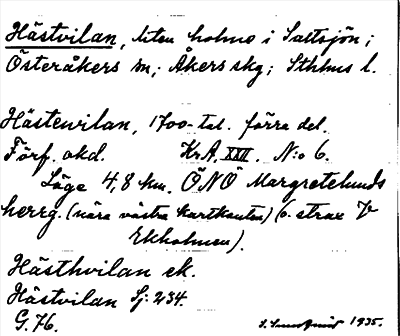 Hästvilan, liten holme i Saltsjön;
Österåkers sn; Åkers skg; Sthlms l.
Hästenvilan, 1700-tal. förra del.
Förf. okd. KrA, XXII. N:o 6.
Läge 4,8 km. ÖNÖ Margretelunds
herrg. (nära västra kartkanten) (o. strax V
Ekholmen).
Hästhvilan ek.
Hästvilan Sj: 234.
G. 76. 1935.